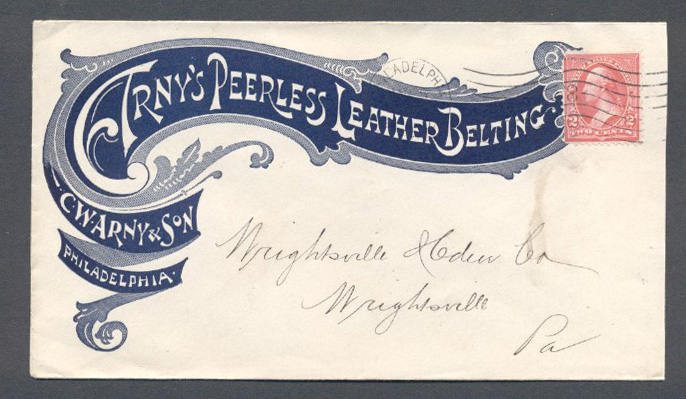 ARNY'S PEERLESS LEATHER BELTING
C.W. ARNY & SON
PHILADELPHIA.
ADELPH
2 TWO CENTS 2
Wrightsville Hdw Co
Wrightsville
Pa